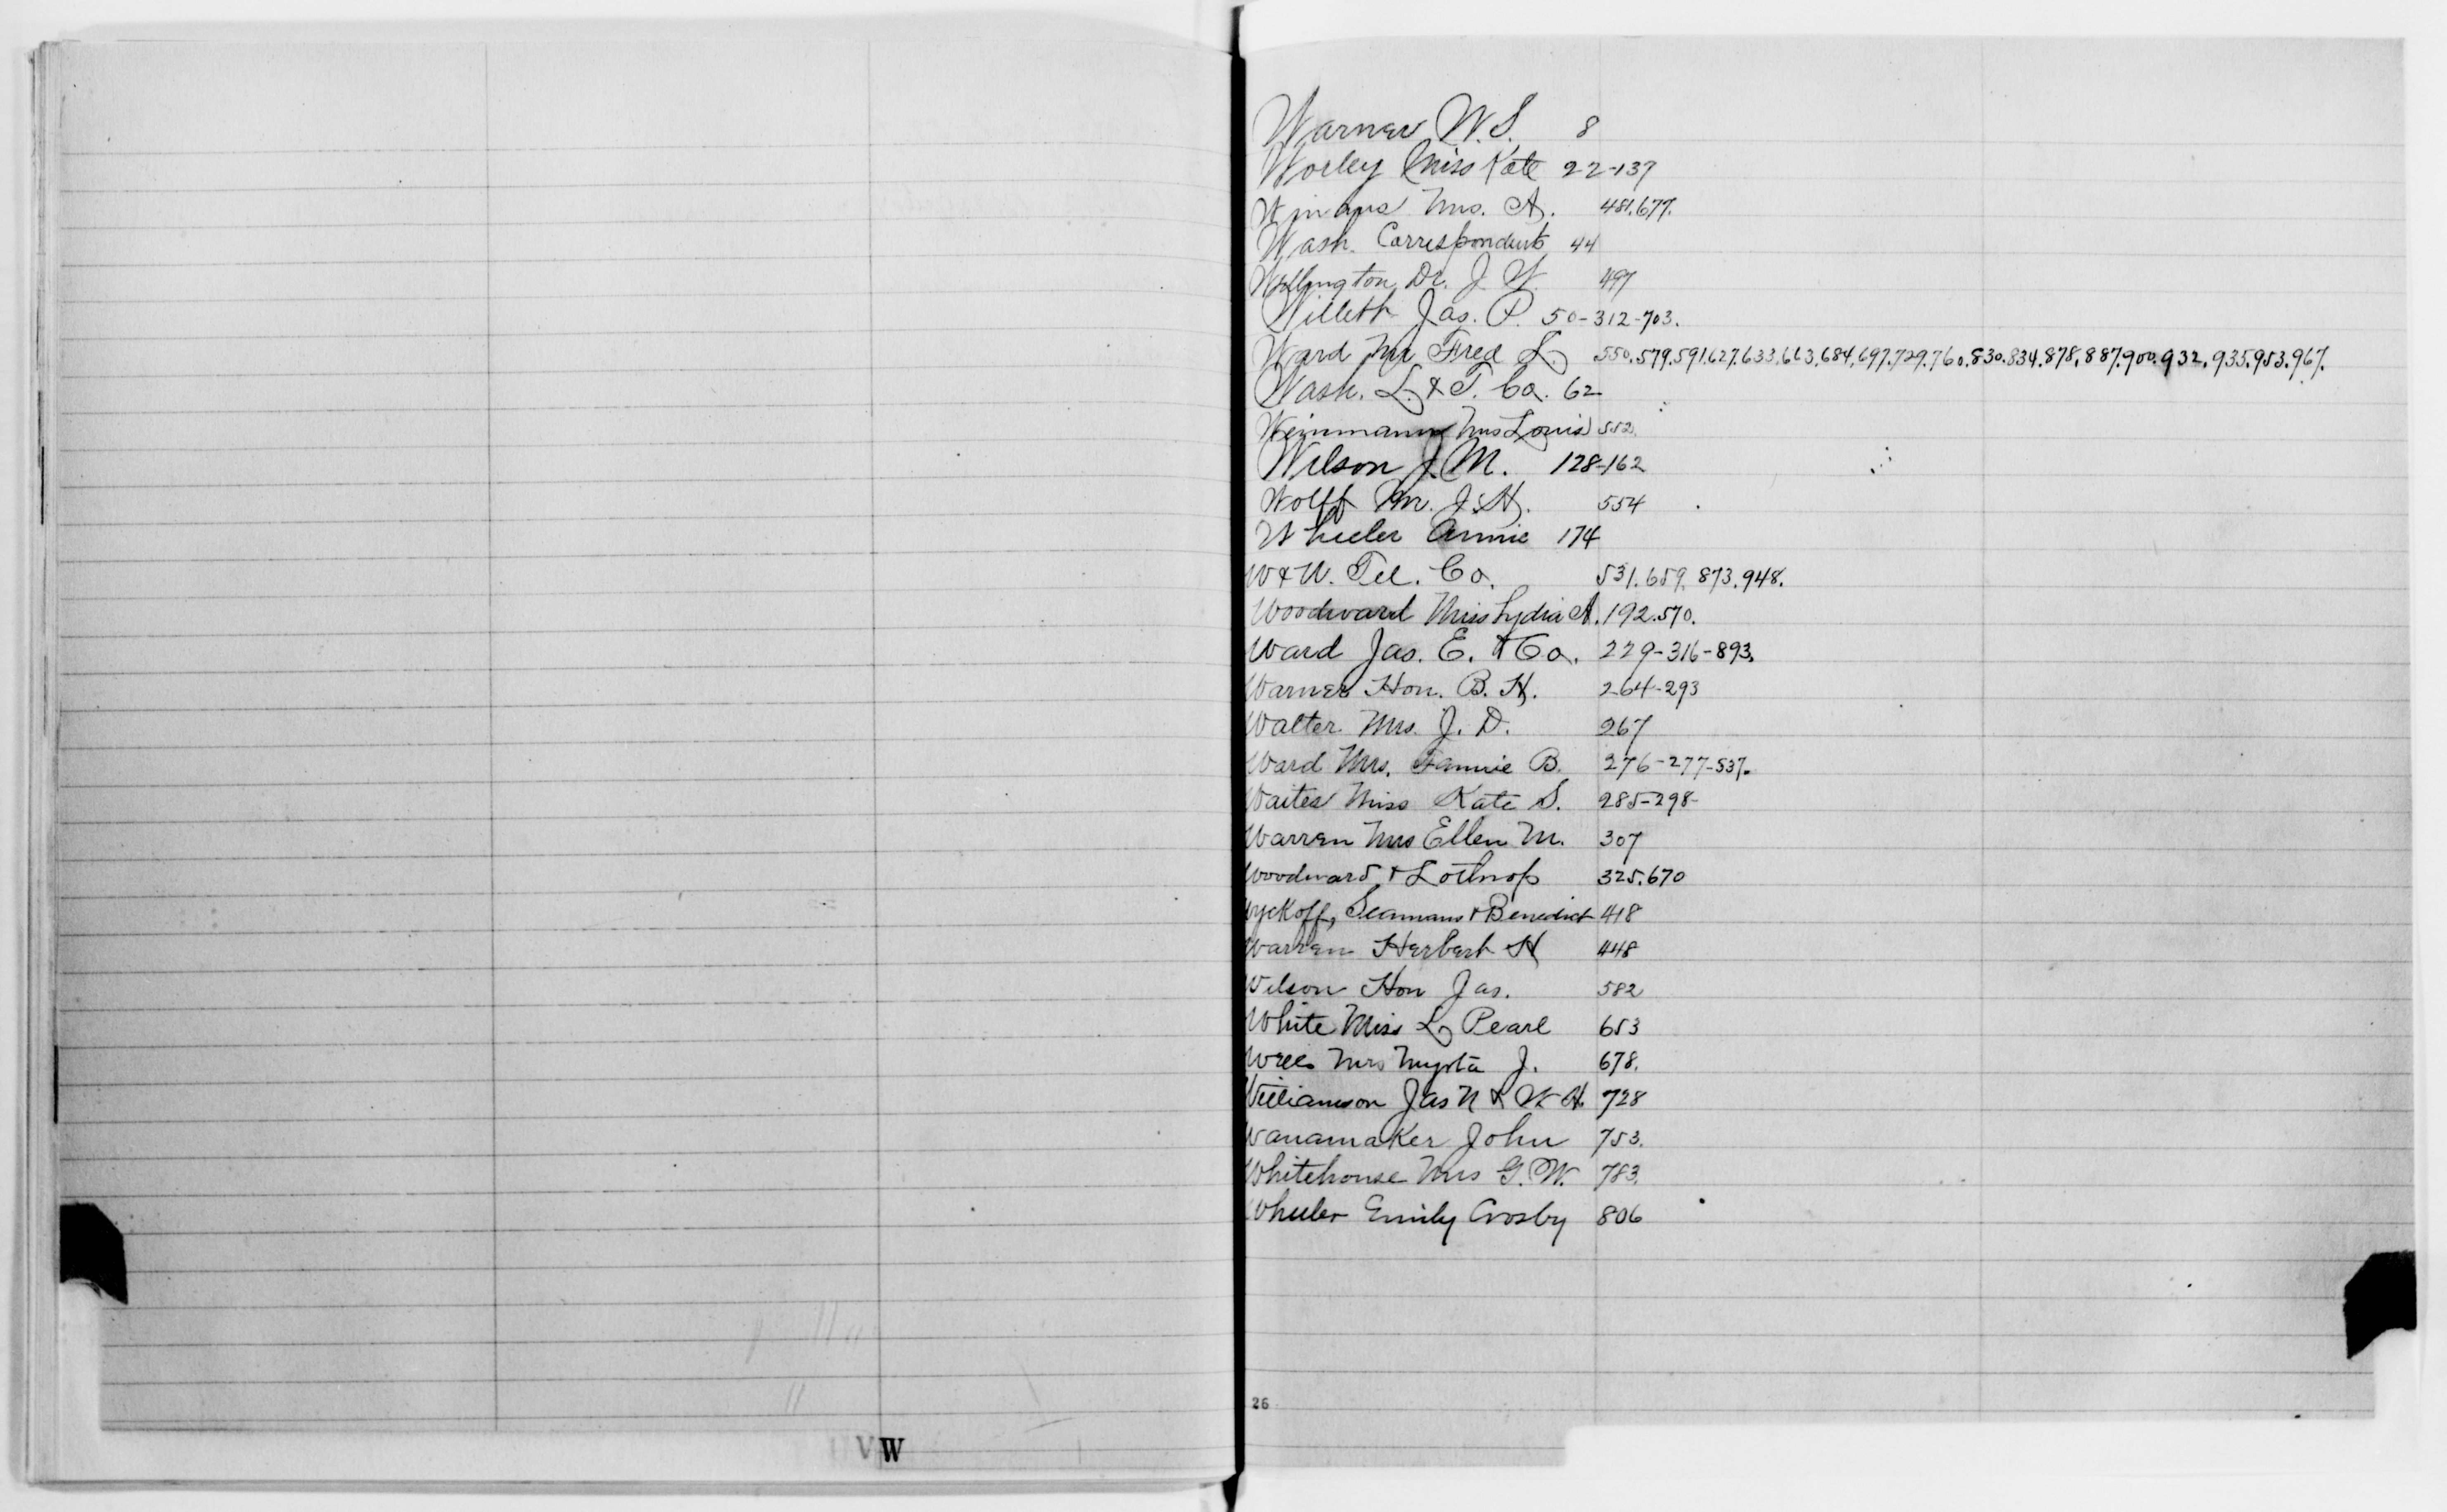 W
Warner W. S. 8
Worley Miss Kate 22-137
Winans Mrs. A. 481.677.
Wash. Correspondents 44
Wellington Dr. J. W. 497
Willett Jas. P. 50-312-703.
Ward Mr Fred L. 550.579.591.627.633.663.684.697.729.760.830.834.878.887.900.932.935.953.967.
Wash. L. & T. Co. 62
Weinmann Mrs Louis 552.
Wilson J. M. 128-162
Wolff Mr. J. H. 554
Wheeler Annie 174
W & U. Tel. Co. 531.659.873.948.
Woodward Miss Lydia A. 192.570.
Ward Jas. E. & Co. 229-316-893.
Warner Hon. B. H. 264-293
Walter Mrs. J. D. 267
Ward Mrs. Fannie B. 276-277-537.
Waites Miss Kate S. 285-298-
Warren Mrs Ellen M. 307
Woodward & Lothrop 325.670
Wyckoff, Seamans & Benedict 418
Warren Herbert H 448
Wilson Hon Jas. 582
White Miss L Pearl 653
Mrs J. 678.
Williamson Jas N & W H. 728
Wanamaker John 753.
Whitehouse Mrs G. W. 783.
Wheeler Emily Crosby 806
26